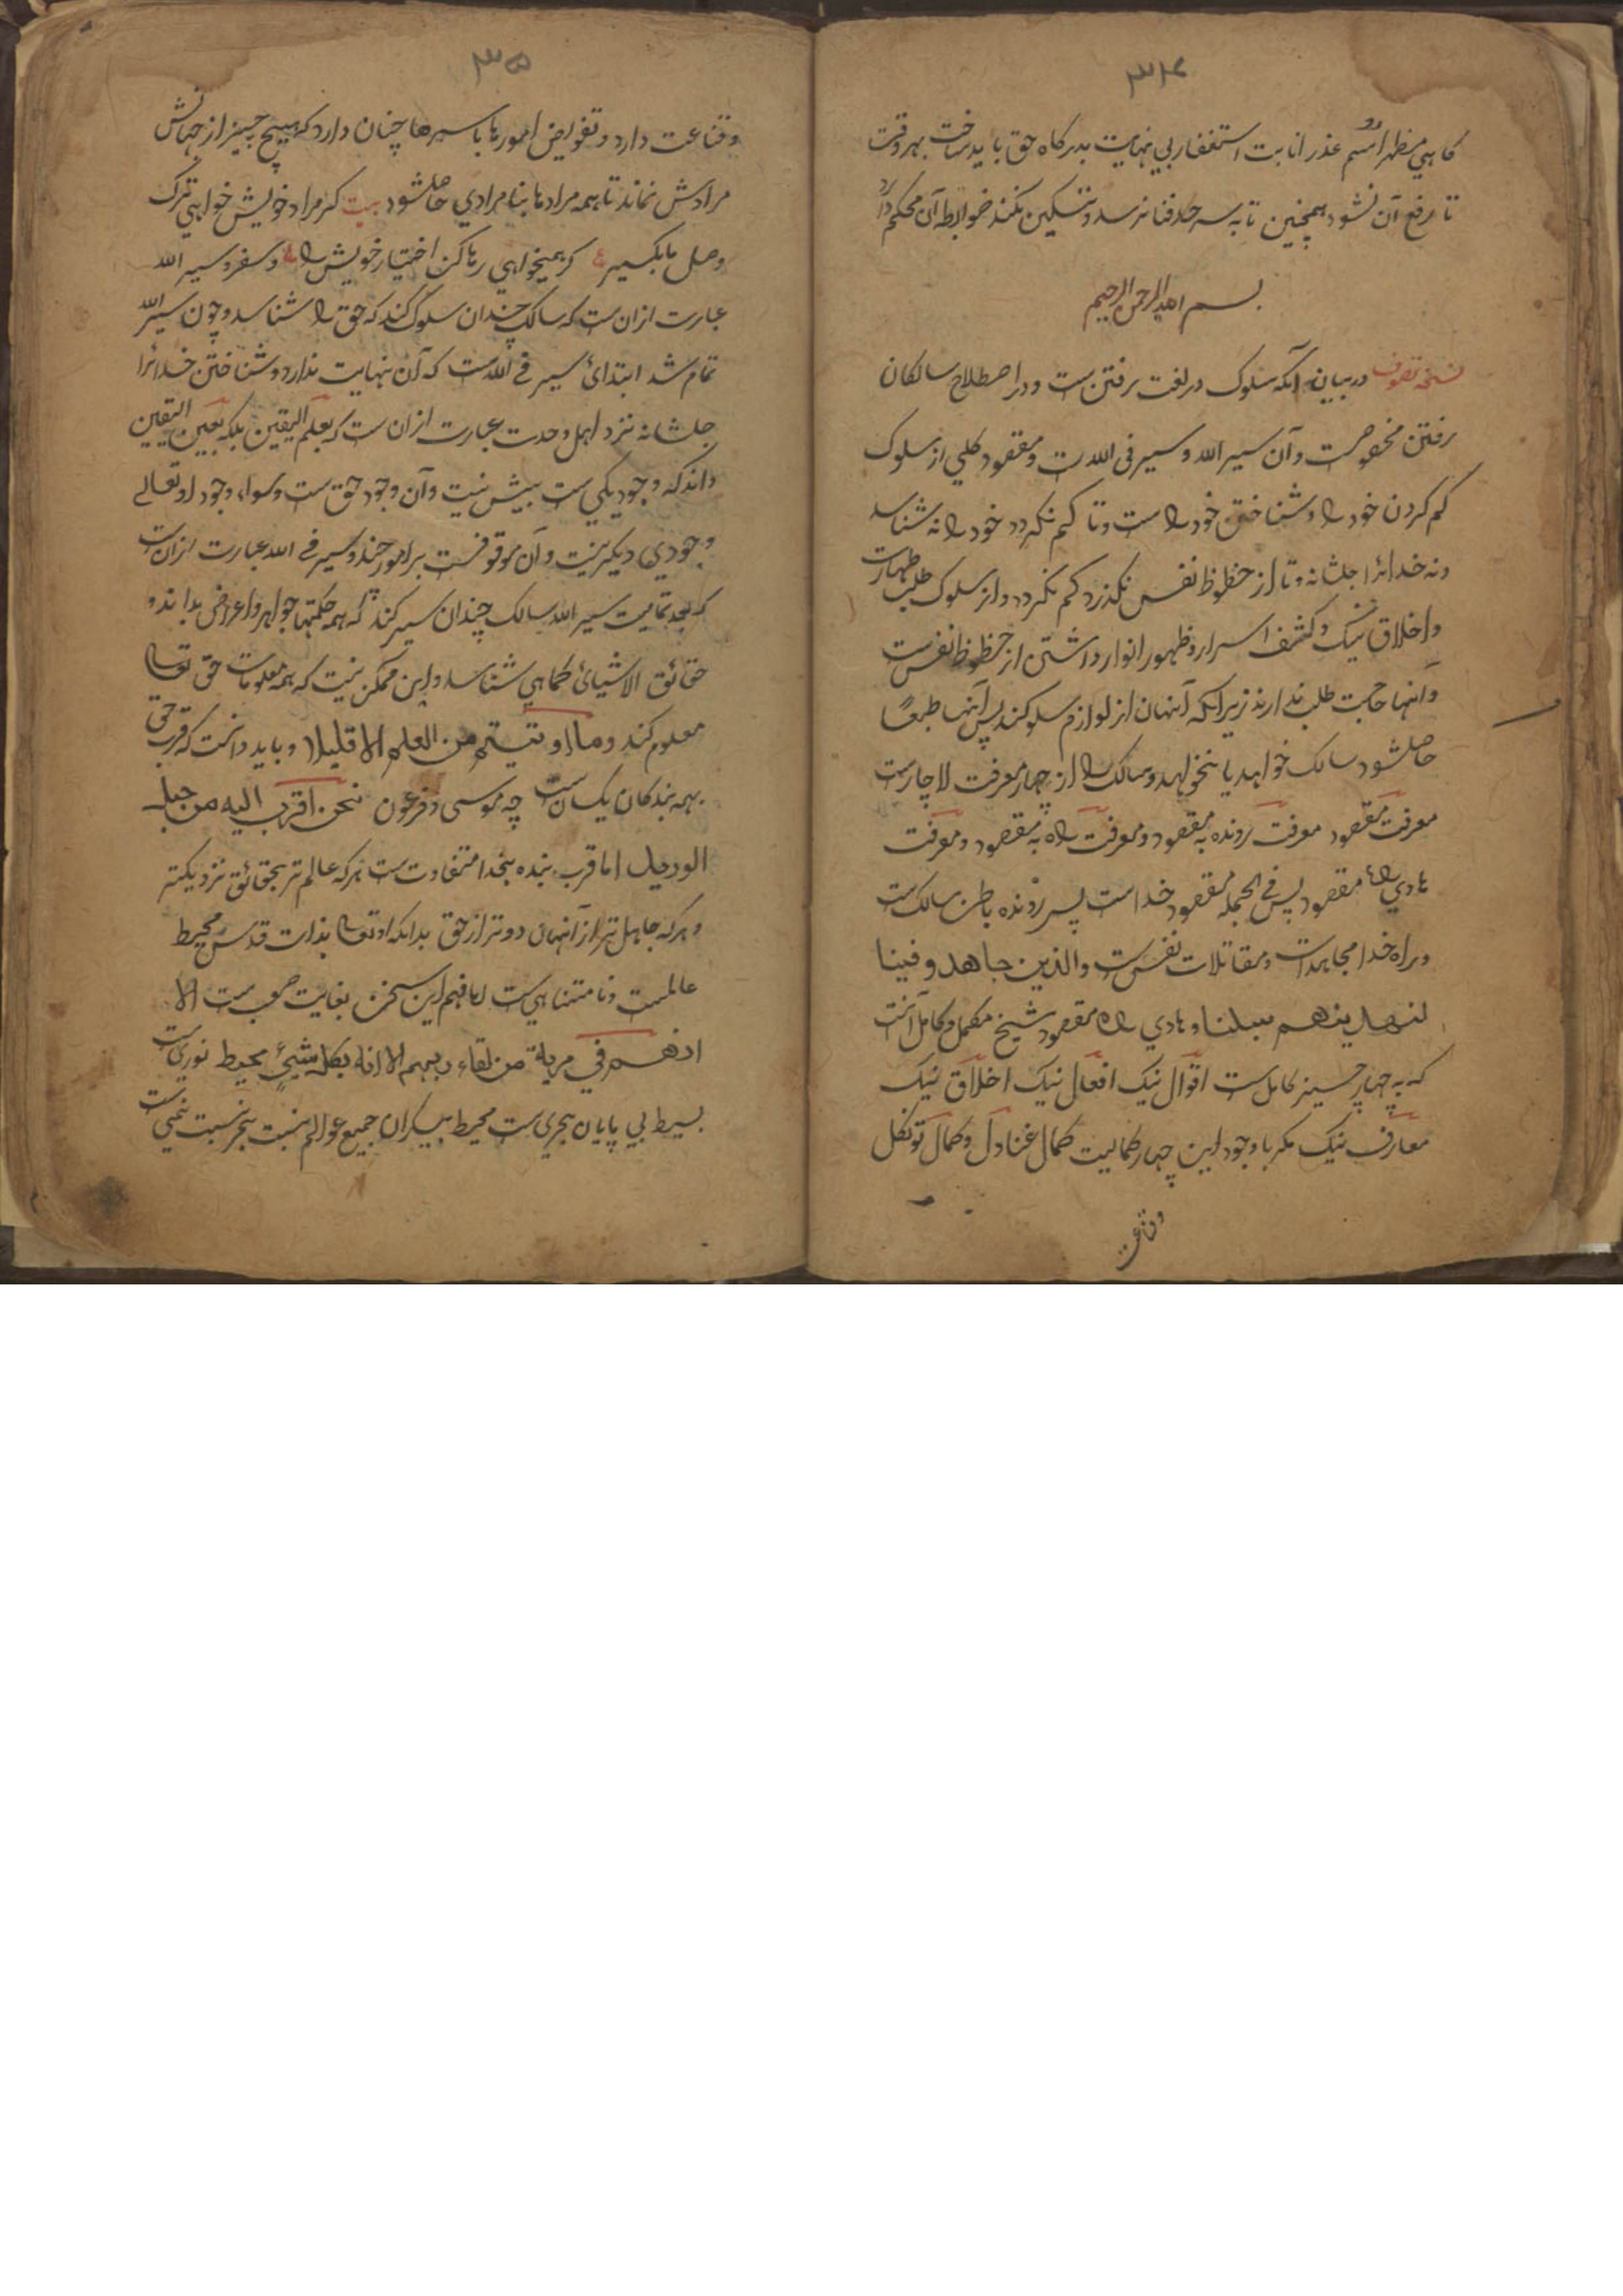 ۳۴
کاهی مظهر اسم عذر انابت استغفار بی نهایت بدرکاه حق باید ساخت بهر وقت
تا رفع آن نشود همچنین تا به سرحد فنا نرسد و تسکین نکند ضوابطه آن محکم دارد
بسم الله الرحمن الرحیم
نسخه تصوف در بیان آنکه سلوک در لغت رفتن ست و در اصطلاح سالکان
رفتن مخصوص ست و آن سیر الله و سیر فی الله ست و مقصود کلی از سلوک
کم کردن خود را و شناختن خود را ست و تا کم نکردد خود را نه شناسد
ونه خدائرا جلشانه و تا از حظوظ نفس نکذرد کم نکردد و از سلوک طلب طهارت
و اخلاق نیک و کشف اسرار و ظهور انوار داشتن از حظوظ نفس ست
و آنها حاجت طلب ندارند زیرا که آنهان از لوازم سلوکند پس آنها طبعًا
حاصل شود سالک خواهد یا نخواهد و سالک را از چهار معرفت لا چارست
معرفت مقصود معرفت رونده به مقصود و معرفت راه به مقصود و معرفت
هادی راه مقصود پس فی الجمله مقصود خداست پس رونده باطن سالک ست
و راه خدا مجاهدات و مقاتلات نفس ست والذین جاهدو فینا
لنهدینهم سبلنا و هادی راه مقصود شیخ مکمل و کامل آنست
که به چهار چیز کامل ست اقوال نیک افعال نیک اخلاق نیک
معارف نیک مکر با وجود این چهار کمالیت کمال غنا دل و کمال توکل
وقناعت
۳۵
وقناعت دارد و تفویض امورها باسرها چنان دارد که هیچ چیز از جهانش
مرادش نماند تا همه مرادها بنامرادی حاصل شود بیت کر مراد خویش خواهی ترک
وصل ما بکیر ع کر همیخواهی رها کن اختیار خویش را و سفر و سیر الله
عبارت ازان ست که سالک چندان سلوک کند که حق را شناسد و چون سیر الله
تمام شد ابتدائ سیر فی الله ست که آن نهایت ندارد و شناختن خدائرا
جلشانه نزد اهل وحدت عبارت ازان ست که بعلم الیقین بلکه بعین الیقین
داند که وجود یکی ست بیش نیست و آن وجود حق ست و سواء وجود او تعالی
وجودی دیکر نیست و آن موقوفست بر امور چند و سیر فی الله عبارت ازان ست
که بعد تمامیت سیر الله سالک چندان سیر کند که همه حکمتها جواهر و اعراض بداند و
حقائق الاشیائ کماهی شناسد و این ممکن نیست که همه معلومات حق تعالی
معلوم کند وما اوتیتم من العلم الا قلیلا و باید دانست که قرب حق
بهمه بندکان یکسان ست چه موسی و فرعون نحن اقرب الیه من حبل
الورید اما قرب بنده بخدا متفاوت ست هر که عالم تر بحقائق نزدیکتر
و هر که جاهل تر از آنهان دورتر از حق بدانکه او تعالی بذات قدس محیط
عالمست و نامتناهی ست اما فهم این سخن بغایت صعب ست الا
انهم فی مریة من لقاء ربهم الا انه بکل شیئ محیط نوریست
بسیط بی پایان بحری ست محیط بیکران جمیع عوالم نسبت ببحر نسبت نمی ست